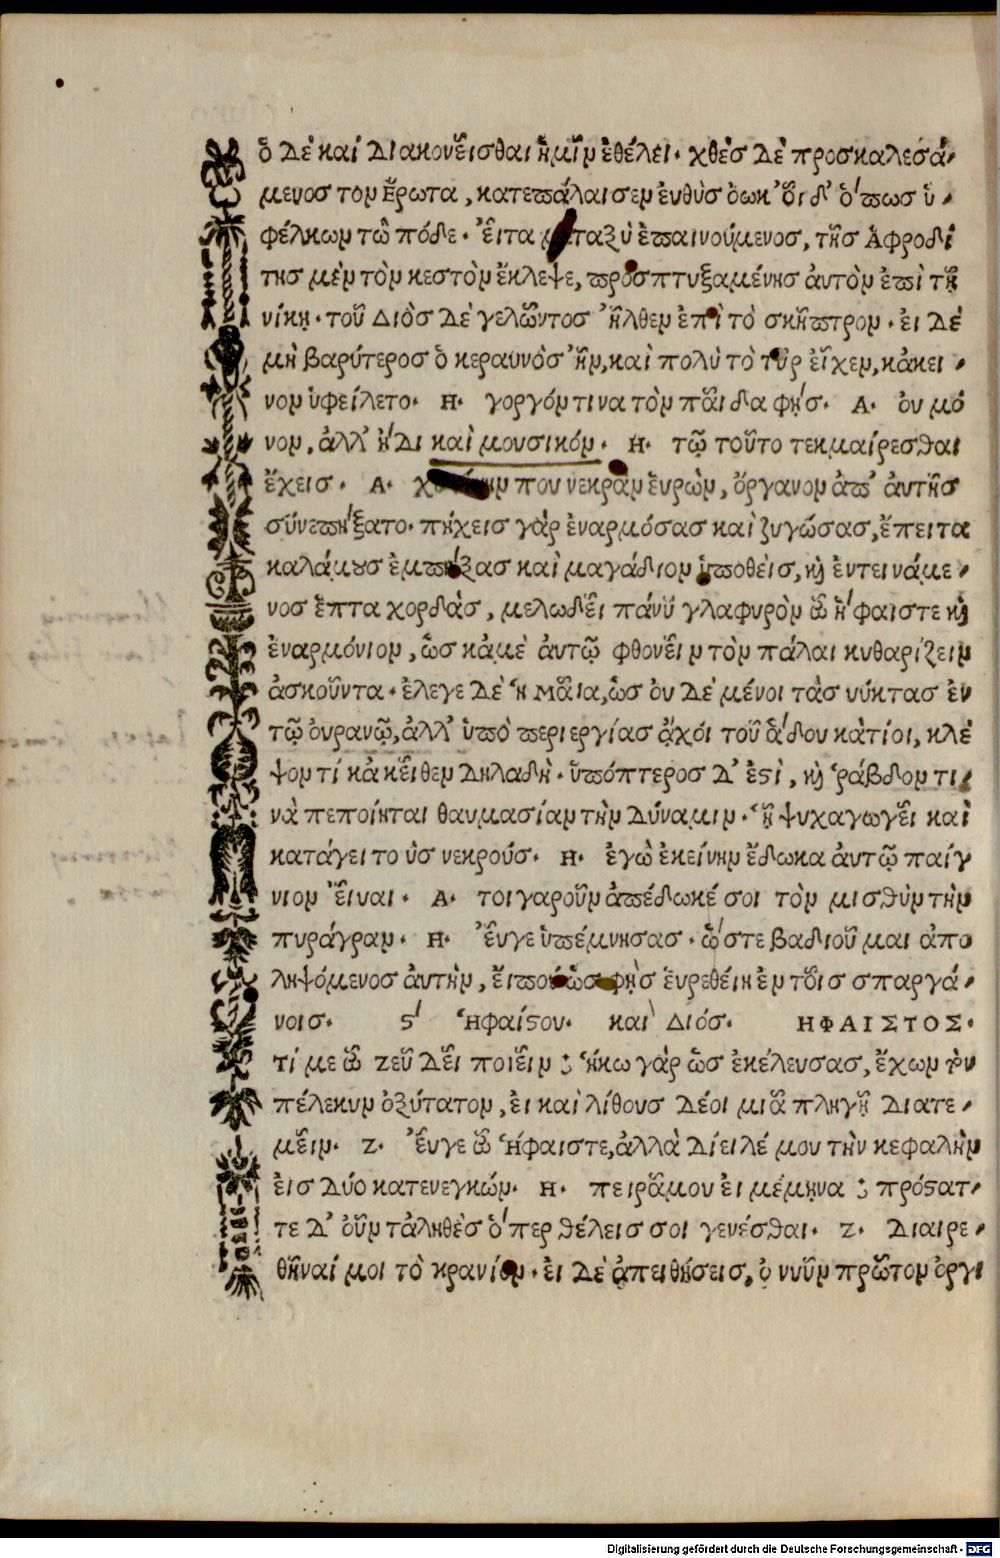 ὁ δὲ καὶ διακονεῖσθαι ἡμῖν ἐθέλει· χθὲς δὲ προσκαλεσά-
μενος τὸν Ἔρωτα, κατεπάλαισεν ἐυθὺς ὀυκ ὅιδ' ὅπως ὑ-
φέλκων τὼ πόδε· ἔιτα μεταξὺ ἐπαινούμενος, τῆς Ἀφροδί
της μὲν τὸν κεστὸν ἔκλεψε, προσπτυξαμένης ἀυτὸν ἐπὶ τῇ
νίκῃ· τοῦ Διὸς δὲ γελῶντος ἦλθεν ἐπὶ τὸ σκῆπτρον· ἐι δὲ
μὴ βαρύτερος ὁ κεραυνὸς ἦν, καὶ πολὺ τὸ πῦρ ἐῖχεν, κἀκεῖ-
νον ὑφείλετο· Η· γοργόν τινα τὸν παῖδα φῄς· Α· ὀυ μό
νον, ἀλλ' ἤδι καὶ μουσικόν· Η· τῷ τοῦτο τεκμαίρεσθαι
ἔχεις· Α· που νεκρὰν ἑυρὼν, ὄργανον ἀπ' ἀυτῆς
σύνεπήξατο· πήχεις γὰρ ἐναρμόσας καὶ ζυγώσας, ἔπειτα
καλάμους ἐμπήξας καὶ μαγάδιον ὑποθεὶς, καὶ ἐντεινάμε-
νος ἑπτα χορδὰς, μελωδεῖ πάνυ γλαφυρὸν ὦ ἥφαιστε καὶ
ἐναρμόνιον, ὡς κἀμὲ ἀυτῷ φθονεῖν τὸν πάλαι κυθαρίζειν
ἀσκοῦντα· ἔλεγε δὲ ἡ μαῖα, ὡς ὀυ δὲ μένοι τὰς νύκτας ἐν
τῷ ὀυρανῷ, ἀλλ' ὑπὸ περιεργίας ἄχρι τοῦ ᾅδου κατίοι, κλέ
ψον τί κἀκεῖθεν δηλαδή· ὑπόπτερος δ' ἐστὶ, καὶ ῥάβδον τι-
νὰ πεποίηται θαυμασίαν τὴν δύναμιν· ᾗ ψυχαγωγεῖ καὶ
κατάγει το ὺς νεκρούς· Η· ἐγὼ ἐκείνην ἔδωκα ἀυτῷ παίγ
νιον ἔιναι· Α· τοιγαροῦν ἀπέδωκέ σοι τὸν μισθὺν τὴν
πυράγραν· Η· ἔυγε ὑπέμνησας· ὥστε βαδιοῦμαι ἀπο
ληψόμενος ἀυτὴν, ἔιπου ὡς φῂς ἑυρεθείη ἐν τοῖς σπαργά-
νοις· ϛ' Ἡφαίστου· καὶ Διός· ΗΦΑΙΣΤΟΣ·
τί με ὦ Ζεῦ δεῖ ποιεῖν; ἥκω γὰρ ὡς ἐκέλευσας, ἔχων τὸν
πέλεκυν ὀξύτατον, ἐι καὶ λίθους δέοι μιᾷ πληγῇ διατε-
μεῖν· Ζ· ἔυγε ὦ Ἥφαιστε, ἀλλὰ δίειλέ μου τὴν κεφαλὴν
ἐις δύο κατενεγκών· Η· πειρᾷ μου ἐι μέμηνα; πρόστατ-
τε δ' ὀῦν τἀληθὲς ὅπερ θέλεις σοι γενέσθαι· Ζ· διαιρε-
θῆναί μοι τὸ κρανίον· ἐι δὲ ἀπειθήσεις, ὀ νυῦν πρῶτον ὀργι
Digitalisierung gefördert durch die Deutsche Forschungsgemeinschaft - DFG